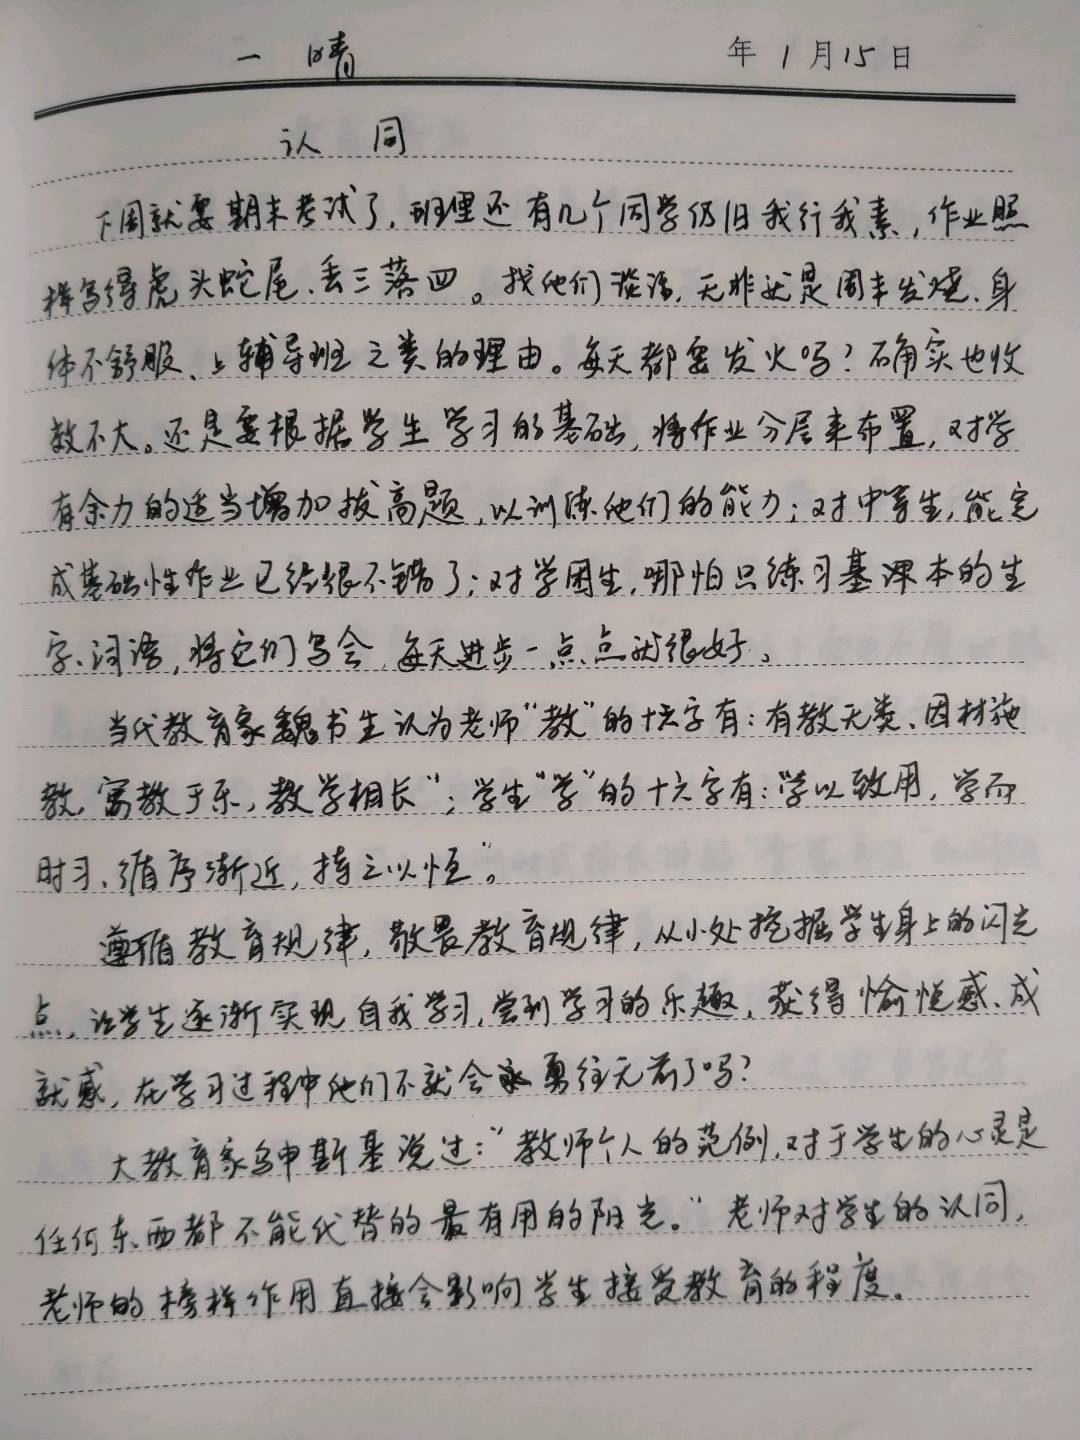 一 晴 年 1 月 15 日
认 同
下周就要期末考试了,班里还有几个同学仍旧我行我素,作业照
样写得虎头蛇尾、丢三落四。找他们谈话,无非就是周末发烧、身
体不舒服、上辅导班之类的理由。每天都要发火吗?确实也收
效不大。还是要根据学生学习的基础,将作业分层来布置,对学
有余力的适当增加拔高题,以训练他们的能力;对中等生,能完
成基础性作业已经很不错了;对学困生,哪怕只练习基课本的生
字、词语,将它们写会,每天进步一点点就很好。
当代教育家魏书生认为老师“教”的十六字有:有教无类、因材施
教,寓教于乐,教学相长”;学生“学”的十六字有:“学以致用,学而
时习、循序渐近,持之以恒”。
遵循教育规律,敬畏教育规律,从小处挖掘学生身上的闪光
点,让学生逐渐实现自我学习,尝到学习的乐趣,获得愉悦感、成
就感,在学习过程中他们不就会勇往无前了吗?
大教育家乌申斯基说过:“教师个人的范例,对于学生的心灵是
任何东西都不能代替的最有用的阳光。”老师对学生的认同,
老师的榜样作用直接会影响学生接受教育的程度。